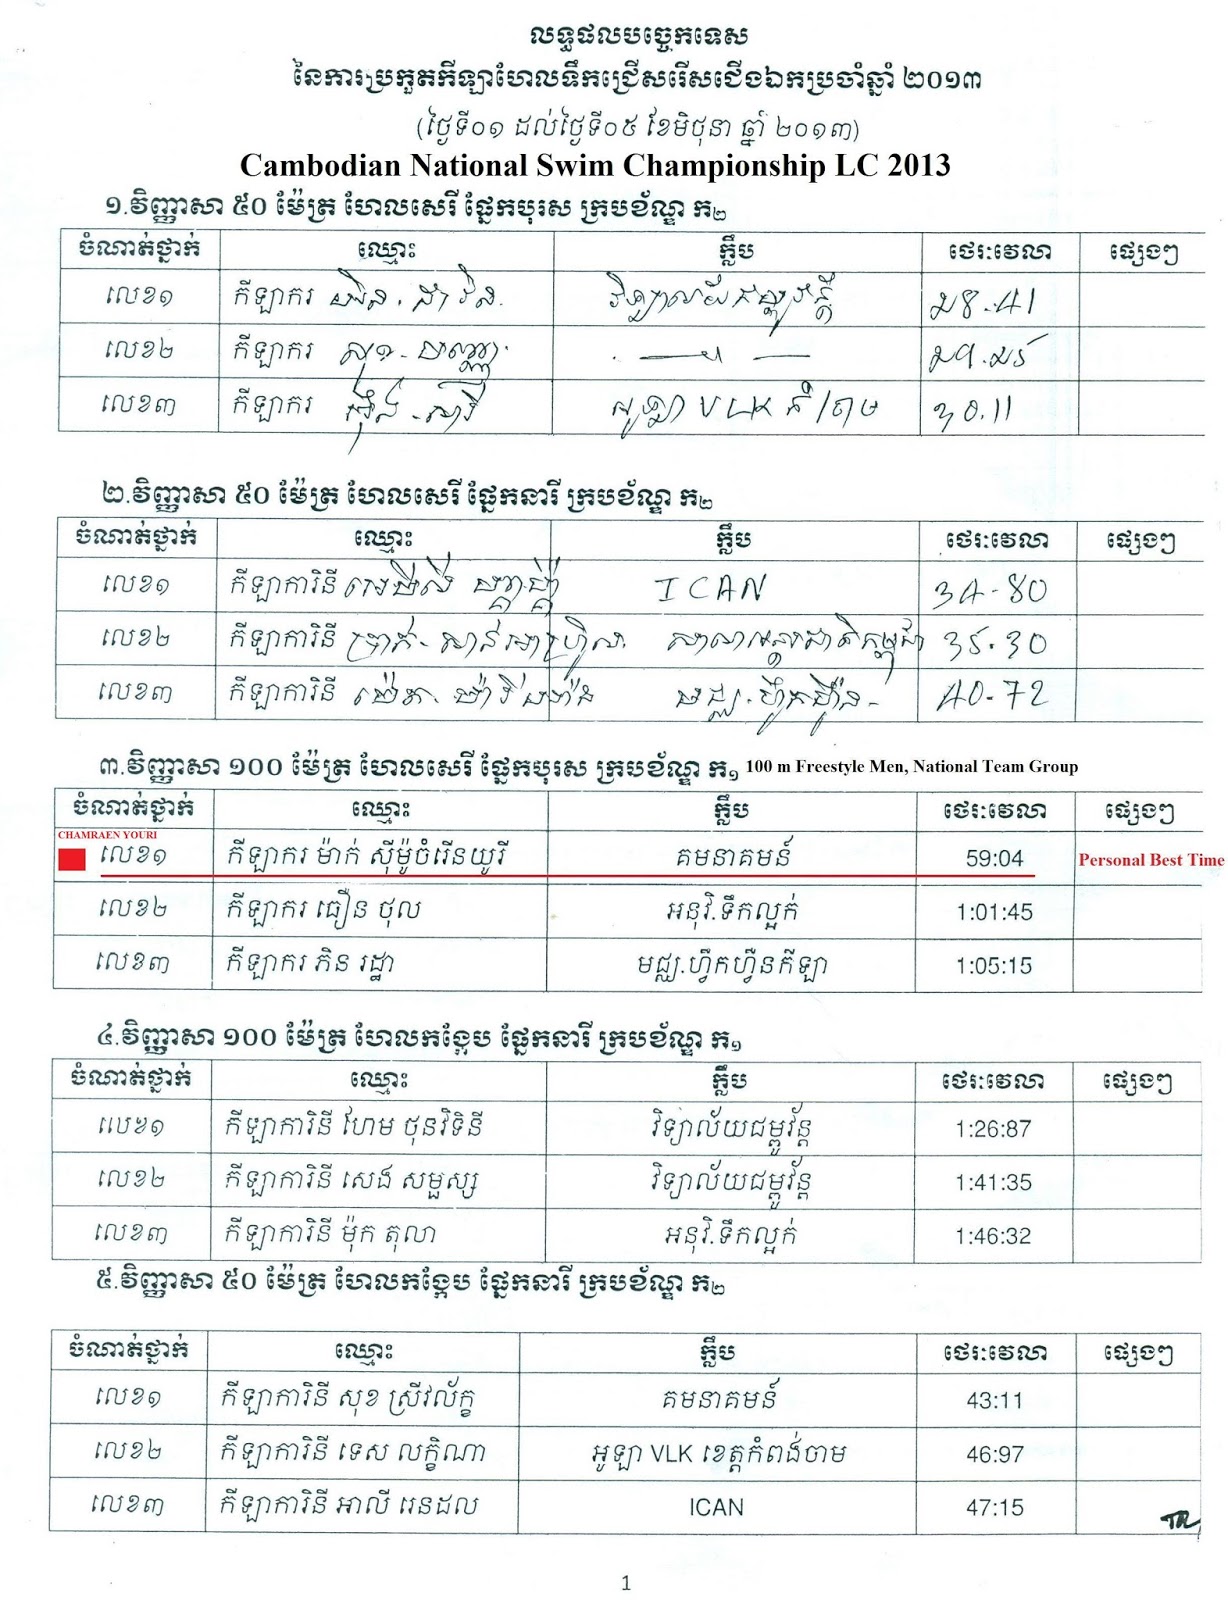 លទ្ធផលបច្ចេកទេស
នៃការប្រកួតកីឡាហែលទឹកជ្រើសរើសជើងឯកប្រចាំឆ្នាំ ២០១៣
(ថ្ងៃទី០១ ដល់ថ្ងៃទី០៥ ខែមិថុនា ឆ្នាំ ២០១៣)
Cambodian National Swim Championship LC 2013
១.វិញ្ញាសា ៥០ ម៉ែត្រ ហែលសេរី ផ្នែកបុរស ក្របខ័ណ្ឌ ក២
ចំណាត់ថ្នាក់ ឈ្មោះ ក្លឹប ថេរៈវេលា ផ្សេងៗ
លេខ១ កីឡាករ ២៨.41
លេខ២ កីឡាករ ២៩.២៥
លេខ៣ កីឡាករ VLK ៣០.11
២.វិញ្ញាសា ៥០ ម៉ែត្រ ហែលសេរី ផ្នែកនារី ក្របខ័ណ្ឌ ក២
ចំណាត់ថ្នាក់ ឈ្មោះ ក្លឹប ថេរៈវេលា ផ្សេងៗ
លេខ១ កីឡាការិនី ICAN 34-80
លេខ២ កីឡាការិនី 35.30
លេខ៣ កីឡាការិនី 40-72
៣.វិញ្ញាសា ១០០ ម៉ែត្រ ហែលសេរី ផ្នែកបុរស ក្របខ័ណ្ឌ ក១ 100 m Freestyle Men, National Team Group
ចំណាត់ថ្នាក់ ឈ្មោះ ក្លឹប ថេរៈវេលា ផ្សេងៗ
CHAMRAEN YOURI
លេខ១ កីឡាករ ម៉ាក់ ស៊ីម៉ូចំរើនយូរី គមនាគមន៍ 59:04 Personal Best Time
លេខ២ កីឡាករ ធឿន ថុល អនុវិ.ទឹកល្អក់ 1:01:45
លេខ៣ កីឡាករ ភិន រដ្ឋា មជ្ឈ.ហ្វឹកហ្វឺនកីឡា 1:05:15
៤.វិញ្ញាសា ១០០ ម៉ែត្រ ហែលកង្កែប ផ្នែកនារី ក្របខ័ណ្ឌ ក១
ចំណាត់ថ្នាក់ ឈ្មោះ ក្លឹប ថេរៈវេលា ផ្សេងៗ
លេខ១ កីឡាការិនី ហែម ថុនវិទិនី វិទ្យាល័យជម្ពូវ័ន្ត 1:26:87
លេខ២ កីឡាការិនី សេង សមួស្ស វិទ្យាល័យជម្ពូវ័ន្ត 1:41:35
លេខ៣ កីឡាការិនី ម៉ុក តុលា អនុវិ.ទឹកល្អក់ 1:46:32
៥.វិញ្ញាសា ៥០ ម៉ែត្រ ហែលកង្កែប ផ្នែកនារី ក្របខ័ណ្ឌ ក២
ចំណាត់ថ្នាក់ ឈ្មោះ ក្លឹប ថេរៈវេលា ផ្សេងៗ
លេខ១ កីឡាការិនី សុខ ស្រីវល័ក្ខ គមនាគមន៍ 43:11
លេខ២ កីឡាការិនី ទេស លក្ខិណា អូឡា VLK ខេត្តកំពង់ចាម 46:97
លេខ៣ កីឡាការិនី អាលី រេនដល ICAN 47:15
1